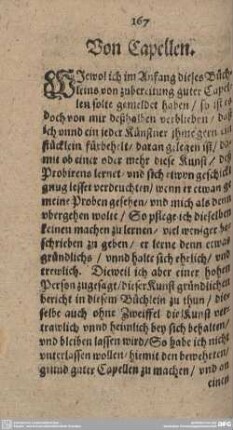 167
Von Capellen.
WJewol ich im Anfang dieses Büch-
leins von zubereitung guter Capel-
len solte gemeldet haben / so ist es
doch von mir deßhalben verblieben / daß
ich vnnd ein jeder Künstner ihme gern ein
stücklein fürbehelt / daran gelegen ist / da-
mit ob einer oder mehr diese Kunst / deß
Probirens lernet / vnd sich etwon geschickt
gnug lesset verduncken / wenn er etwan ge-
meine Proben gesehen / vnd mich als denn
vbergehen wolte / So pflege ich dieselben
keinen machen zu lernen / viel weniger be-
schrieben zu geben / er lerne denn etwas
gründlichs / vnnd halte sich ehrlich / vnd
trewlich. Dieweil ich aber einer hohen
Person zugesagt / dieser Kunst gründlichen
bericht in diesem Büchlein zu thun / die-
selbe auch ohne Zweiffel die Kunst ver-
trawlich vnnd heimlich bey sich behalten /
vnd bleiben lassen wird / So habe ich nicht
vnterlassen wollen / hiermit den beweheten /
grund guter Capellen zu machen / vnd an
einen